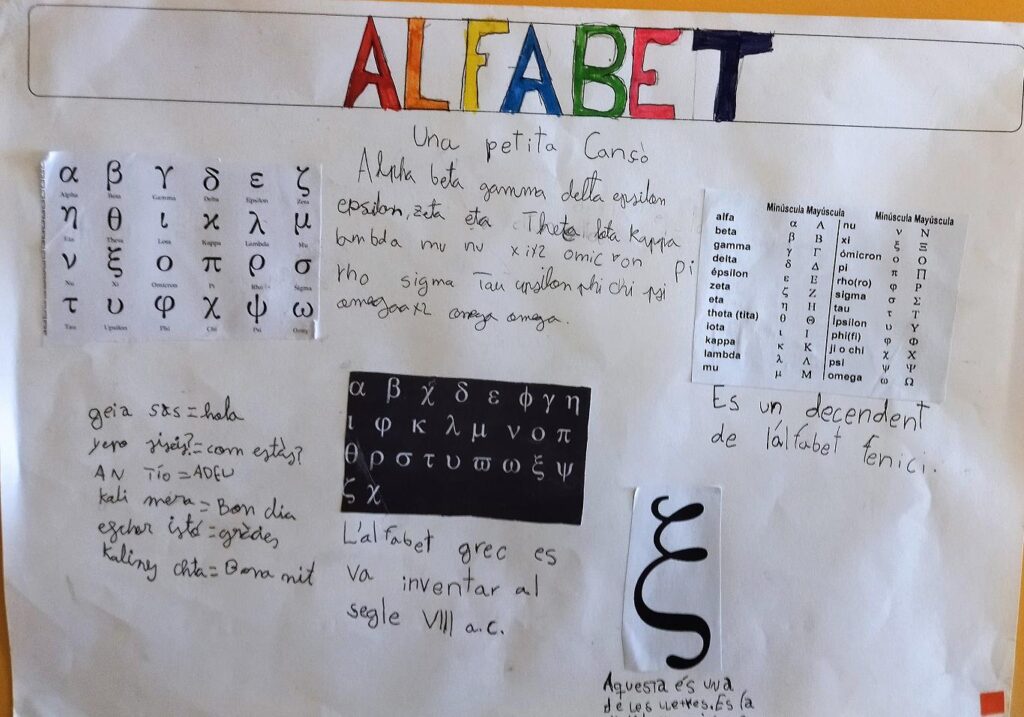 ALFABET
Una petita Cansò
Alpha beta gamma delta epsilon
epsilon, zeta eta Theta Iota Kappa
lambda mu nu x1x2 omicron pi
rho sigma Tau upsilon phi chi psi
omega omega.
α β γ δ ε ζ
Alpha Beta Gamma Delta Epsilon Zeta
η θ ι κ λ μ
Eta Theta Iota Kappa Lambda Mu
ν ξ ο π ρ σ
Nu Xi Omicron Pi Rho Sigma
τ υ φ χ ψ ω
Tau Upsilon Phi Chi Psi
Minúscula Mayúscula Minúscula Mayúscula
alfa α Α nu ν Ν
beta β Β xi ξ Ξ
gamma γ Γ ómicron ο Ο
delta δ Δ pi π Π
épsilon ε Ε rho(ro) φ Ρ
zeta ζ Ζ sigma σ Σ
eta η Η tau τ Τ
theta (tita) θ Θ ípsilon υ Υ
iota ι Ι phi(fi) φ Φ
kappa κ Κ ji o chi χ Χ
lambda λ Λ psi ψ Ψ
mu μ Μ omega ω Ω
Es un decendent
de l'alfabet fenici.
geia sas=hola
=com estàs?
AN Tío=ADEU
Kali mera=Bon dia
=gràcies
=Bona nit
α β χ δ ε φ γ η
ι φ κ λ μ ν ο π
θ ρ σ τ υ ϖ ω ξ ψ
ζ χ
L'alfabet grec es
va inventar al
segle VIII a.c.
ξ
Aquesta és una
de les lletres. Es la